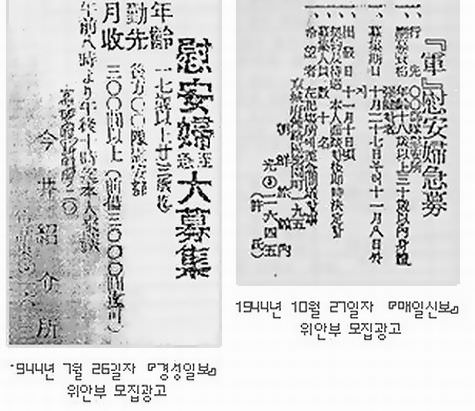 慰安婦至急大募集
年齢 一七歳以上廿三歳迄
勤先 後方〇〇隊慰安部
月収 三〇〇圓以上(前借三〇〇〇圓迄可)
午前八時より午後十時迄本人來談
今井紹介所
1944년 7월 26일자 『경성일보』
위안부 모집광고
『軍』慰安婦急募
一、行先 〇〇部隊慰安所
一、應募資格 年齢十八歳以上三十歳以內身體
一、募集期日 十月二十七日 十一月八日
一、出發日 十一月十日頃
一、契約及待遇 本人面談後即時決定
一、募集人員 數 名
一、希望者 左記場所
町一九五
朝鮮旅館內
光③二六四五
(許氏)
1944년 10월 27일자 『매일신보』
위안부 모집광고